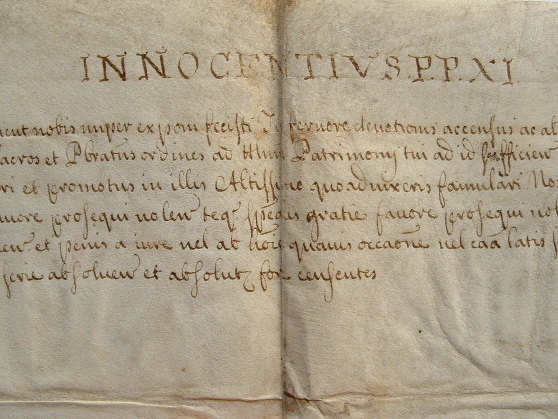 INNOCENTIVS.P.P.XI.
nobis nuper exponi fecisti fervore devotionis accensus ac
sacros et Pbratus ordines ad titlum Patrimonij tui ad id sufficien
et promotus in illis Altissimo quoad vixeris famulari
favore prosequi volen teq. gratie favore prosequi
et penis a iure vel ab quavis occaone vel caa latis
serie absolven et absolut fore censentes